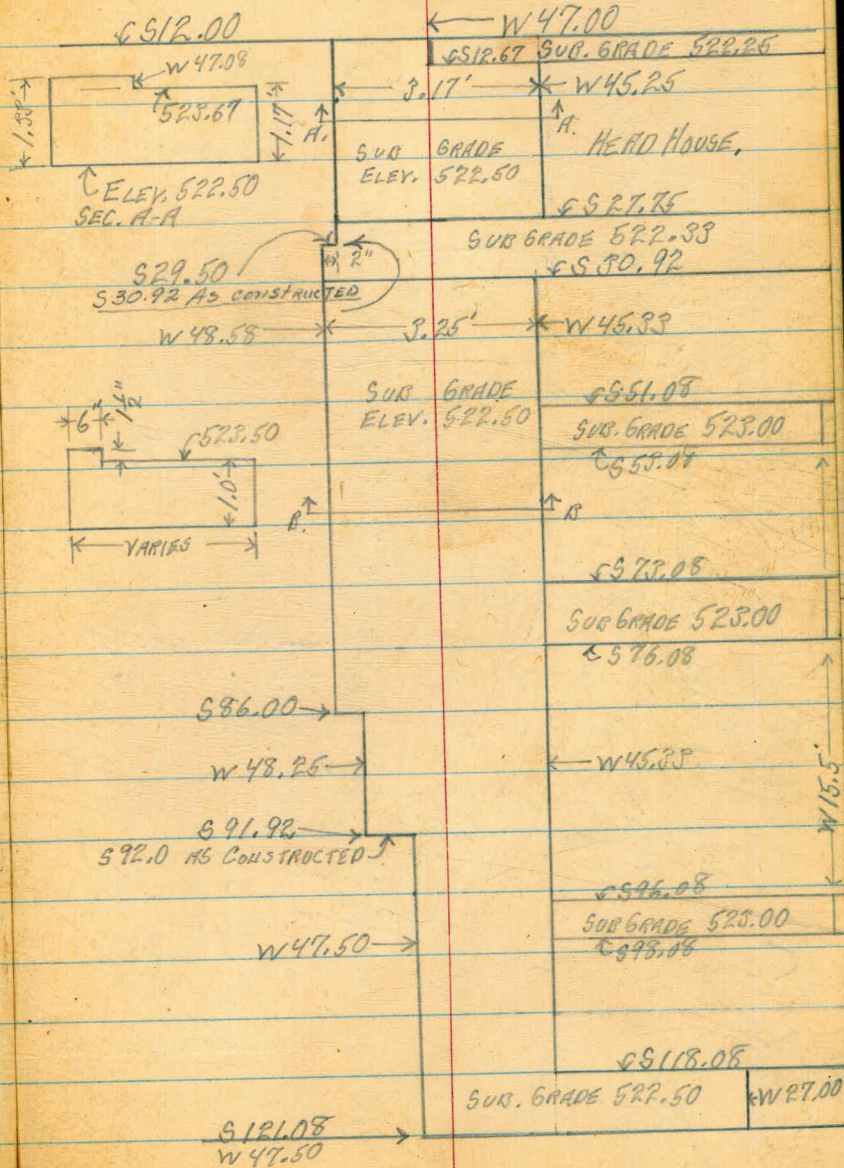 S12.00
W 47.00
S12.67 SUB. GRADE 522.25
W 47.08
523.67
1.17'
3.17'
W 45.25
A.
A.
HEAD HOUSE,
SUB GRADE
ELEV. 522.50
ELEV. 522.50
SEC. A-A
S 27.75
SUB GRADE 522.33
S29.50
2"
S 30.92
S30.92 AS CONSTRUCTED
W 48.58
3.25'
W 45.33
SUB GRADE
ELEV. 522.50
S51.08
SUB. GRADE 523.00
S53.08
6"
1 1/2"
523.50
1.0'
VARIES
B.
B
S73.08
SUB GRADE 523.00
S76.08
S86.00
W 48.25
W45.33
W15.5'
S 91.92
S92.0 AS CONSTRUCTED
S96.08
SUB GRADE 523.00
S98.08
W47.50
S118.08
SUB. GRADE 522.50
W27.00
S121.08
W 47.50